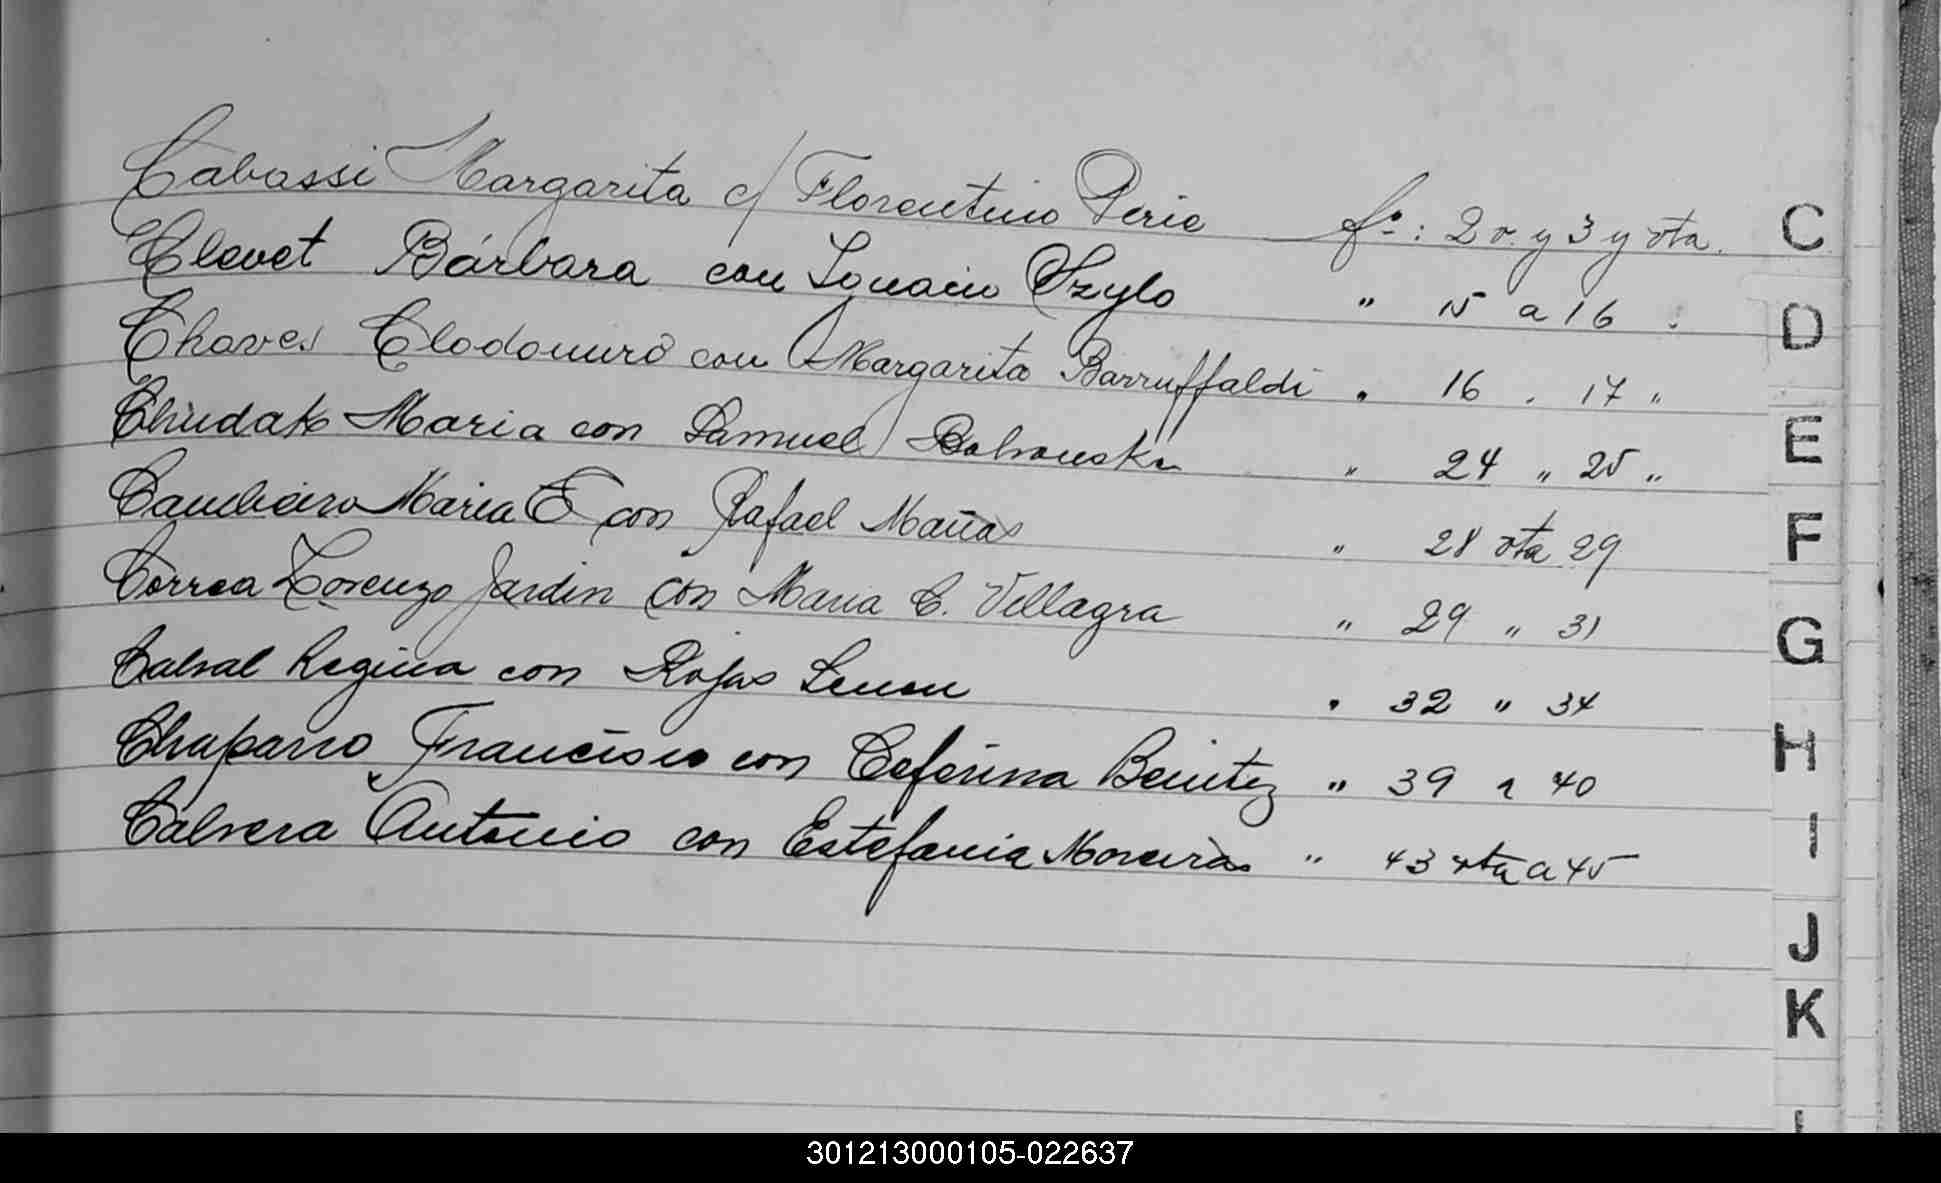 Cabassi Margarita c/ Florentino Perie fº: 2 v. y 3 y vta.
Clevet Bárbara con Ignacio Szylo " 15 a 16 .
Chaves Clodomiro con Margarita Barruffaldi " 16 . 17 "
Chudak Maria con Samuel " 24 " 25 "
Maria E con Rafael Mañas " 28 vta 29
Correa Lorenzo Jardin con Maria C. Villagra " 29 " 31
Cabral Regina con Rojas Lenon " 32 " 34
Chaparro Francisco con Ceferina Benitez " 39 a 40
Cabrera Antonio con Estefania Moreira " 43 vta a 45
C
D
E
F
G
H
I
J
K
301213000105-022637